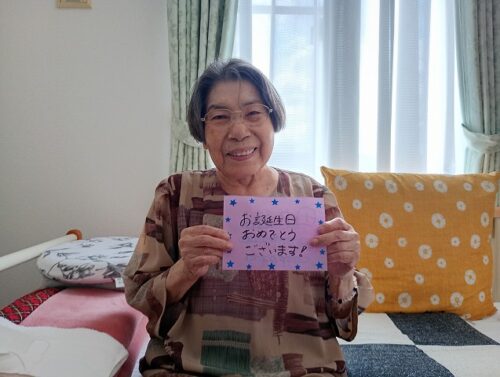 お誕生日
おめでとう
ございます!